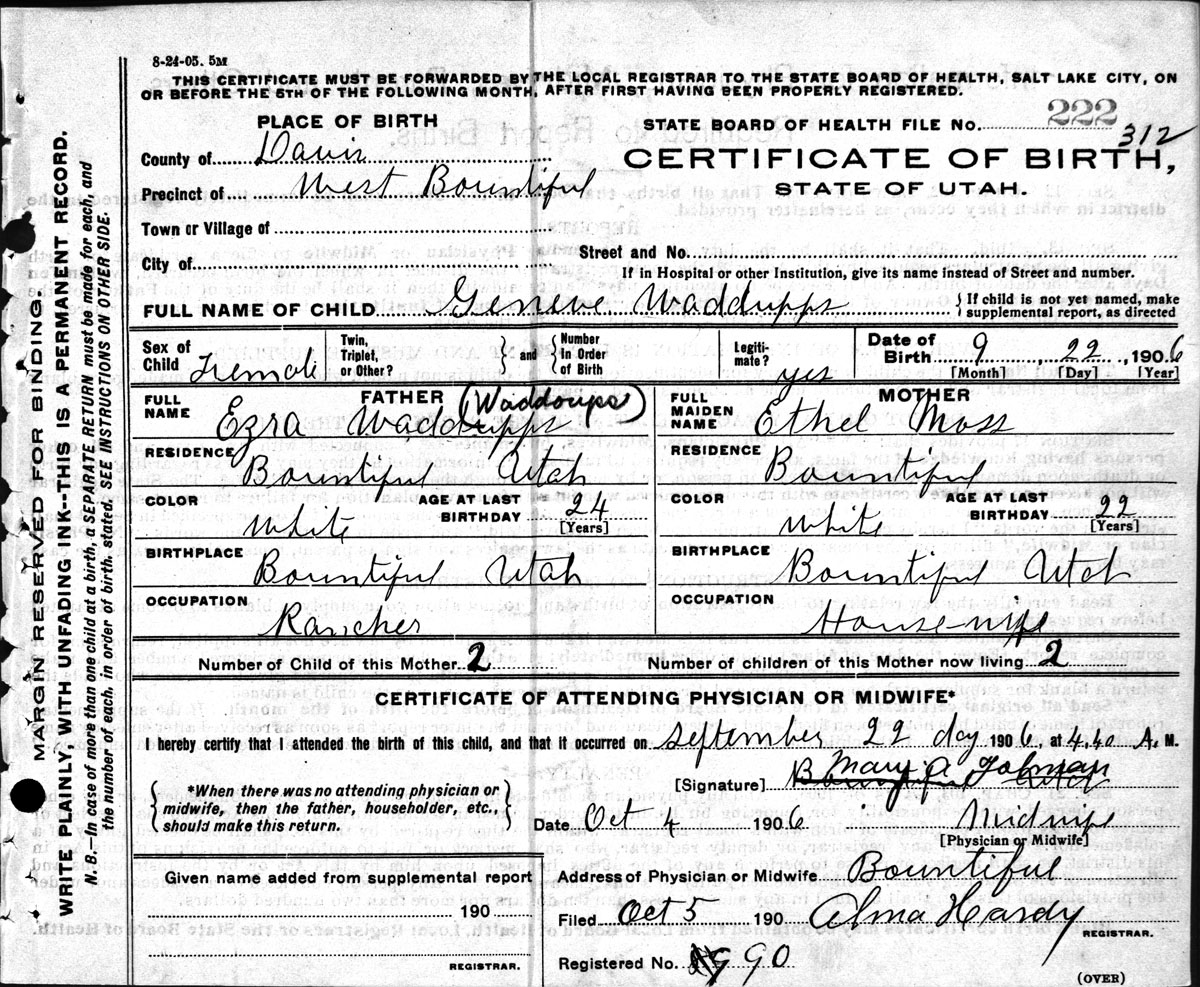 8-24-05. 5M
THIS CERTIFICATE MUST BE FORWARDED BY THE LOCAL REGISTRAR TO THE STATE BOARD OF HEALTH, SALT LAKE CITY, ON
OR BEFORE THE 5TH OF THE FOLLOWING MONTH, AFTER FIRST HAVING BEEN PROPERLY REGISTERED.
PLACE OF BIRTH
STATE BOARD OF HEALTH FILE No. 222
312
County of Davis
CERTIFICATE OF BIRTH,
Precinct of West Bountiful
STATE OF UTAH.
Town or Village of
City of
Street and No.
If in Hospital or other Institution, give its name instead of Street and number.
FULL NAME OF CHILD Geneve Waddupps { If child is not yet named, make supplemental report, as directed
Sex of Child Female
Twin, Triplet, or Other? } and { Number in Order of Birth
Legitimate? yes
Date of Birth 9, 22, 1906
[Month] [Day] [Year]
FATHER
FULL NAME Ezra Waddupps (Waddoups)
MOTHER
FULL MAIDEN NAME Ethel Moss
RESIDENCE Bountiful Utah
RESIDENCE Bountiful
COLOR White AGE AT LAST BIRTHDAY 24 [Years]
COLOR White AGE AT LAST BIRTHDAY 22 [Years]
BIRTHPLACE Bountiful Utah
BIRTHPLACE Bountiful Utah
OCCUPATION Rancher
OCCUPATION House-wife
Number of Child of this Mother 2 Number of children of this Mother now living 2
CERTIFICATE OF ATTENDING PHYSICIAN OR MIDWIFE*
I hereby certify that I attended the birth of this child, and that it occurred on September 22 day 1906, at 4,40 A. M.
{ *When there was no attending physician or midwife, then the father, householder, etc., should make this return. }
[Signature] Mary A Tolman
Date Oct 4 1906 Midwife
[Physician or Midwife]
Given name added from supplemental report
190
REGISTRAR.
Address of Physician or Midwife Bountiful
Filed Oct 5 190 Alma Hardy
REGISTRAR.
Registered No. 90
(OVER)
MARGIN RESERVED FOR BINDING.
WRITE PLAINLY WITH UNFADING INK--THIS IS A PERMANENT RECORD.
N. B.--In case of more than one child at a birth, a SEPARATE RETURN must be made for each, and
the number of each, in order of birth, stated. SEE INSTRUCTIONS ON OTHER SIDE.